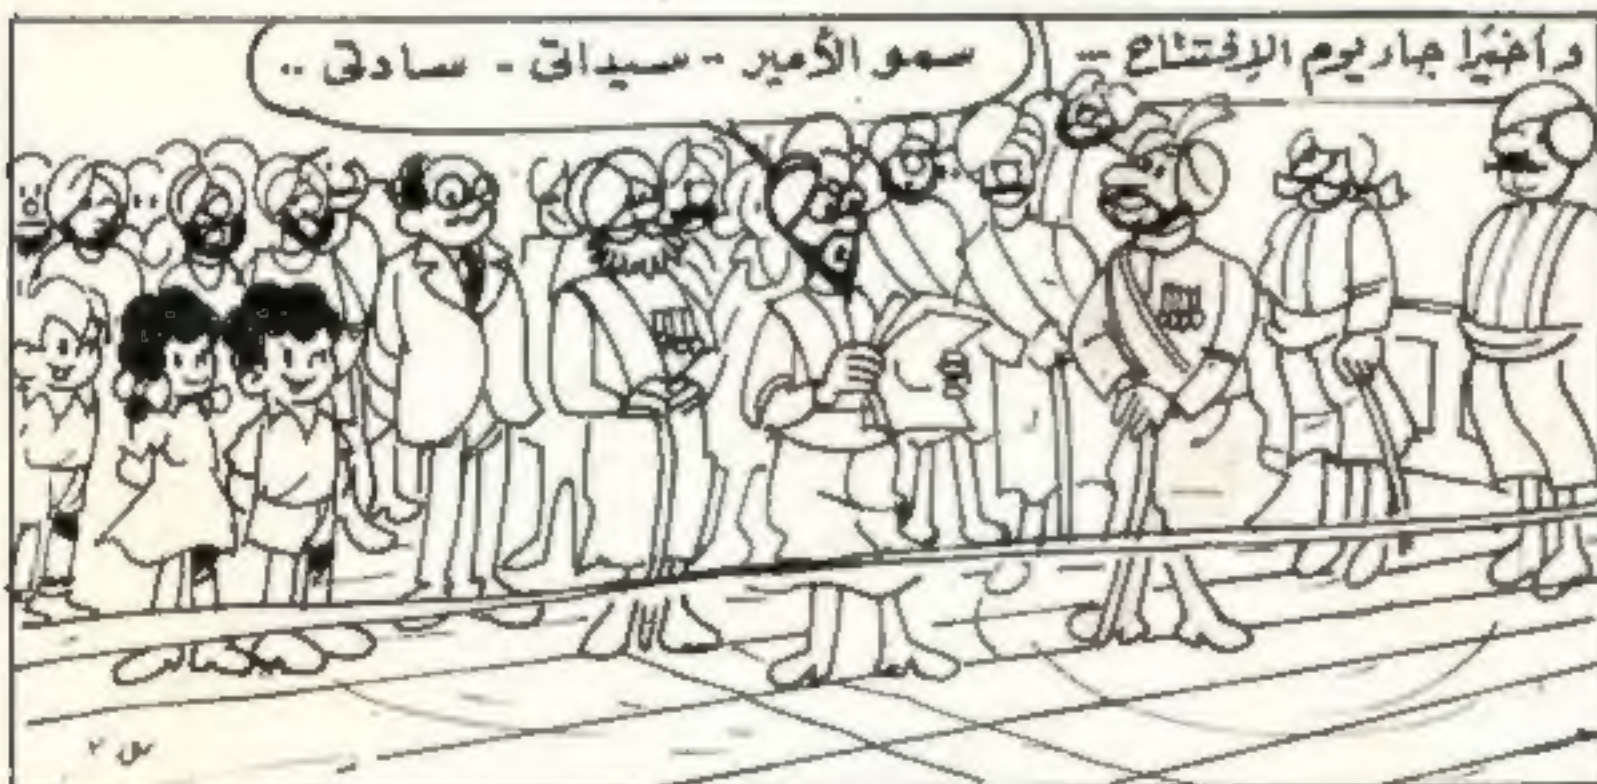 وأخيًرا جاء يوم الإفتتاح --
سمو الأمير - سيداتى - سادتى ..